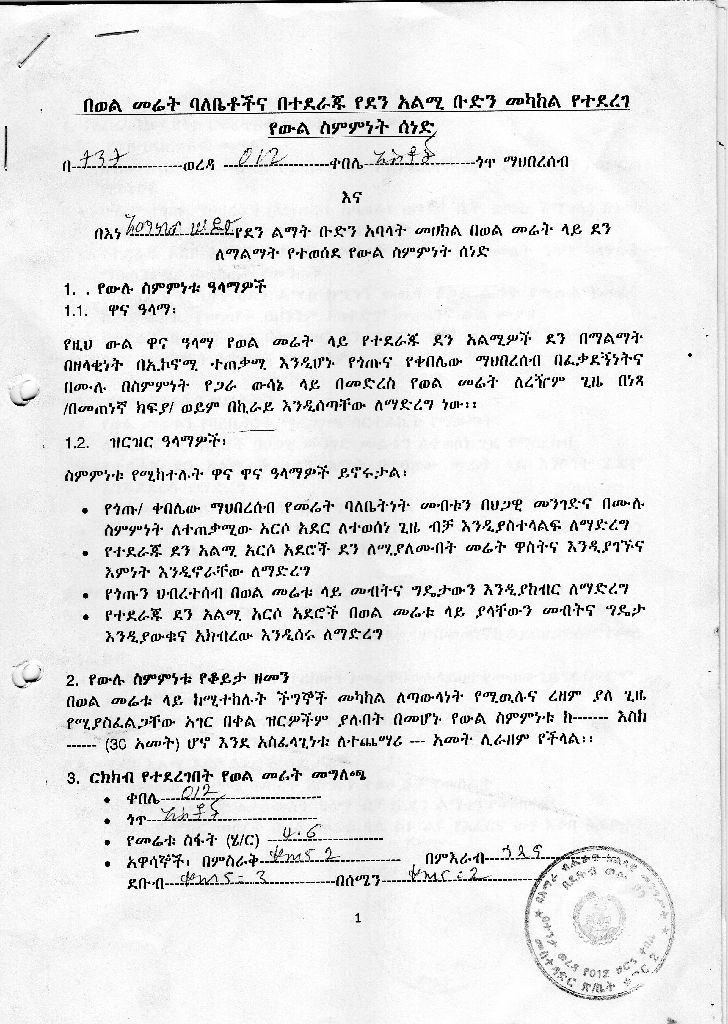 በወል መሬት ባለቤቶችና በተደራጁ የደን አልሚ ቡድን መካከል የተደረገ
የውል ስምምነት ሰነድ
በ ወረዳ 012 ቀበሌ ጎጥ ማህበረሰብ
እና
በእነ የደን ልማት ቡድን አባላት መሀከል በወል መሬት ላይ ደን
ለማልማት የተወሰደ የውል ስምምነት ሰነድ
1. . የውሉ ስምምነቱ ዓላማዎች
1.1. ዋና ዓላማ፡
የዚህ ውል ዋና ዓላማ የወል መሬት ላይ የተደራጁ ደን አልሚዎች ደን በማልማት
በዘላቂነት በኢኮኖሚ ተጠቃሚ እንዲሆኑ የጎጡና የቀበሌው ማህበረሰብ በፈቃደኝነትና
በሙሉ በስምምነት የጋራ ውሳኔ ላይ በመድረስ የወል መሬት ለረዥም ጊዜ በነጻ
/በመጠነኛ ክፍያ/ ወይም በኪራይ እንዲሰጣቸው ለማድረግ ነው፡፡
1.2. ዝርዝር ዓላማዎች፡
ስምምነቱ የሚከተሉት ዋና ዋና ዓላማዎች ይኖሩታል፡
• የጎጡ/ ቀበሌው ማህበረሰብ የመሬት ባለቤትነት መብቱን በህጋዊ መንገድና በሙሉ
ስምምነት ለተጠቃሚው አርሶ አደር ለተወሰነ ጊዜ ብቻ እንዲያስተላልፍ ለማድረግ
• የተደራጁ ደን አልሚ አርሶ አደሮች ደን ለሚያለሙበት መሬት ዋስትና እንዲያገኙና
እምነት እንዲኖራቸው ለማድረግ
• የጎጡን ህብረተሰብ በወል መሬቱ ላይ መብትና ግዴታውን እንዲያከብር ለማድረግ
• የተደራጁ ደን አልሚ አርሶ አደሮች በወል መሬቱ ላይ ያላቸውን መብትና ግዴታ
እንዲያውቁና አክብረው እንዲሰሩ ለማድረግ
2. የውሉ ስምምነቱ የቆይታ ዘመን
በወል መሬቱ ላይ ከሚተከሉት ችግኞች መካከል ለጣውላነት የሚዉሉና ረዘም ያለ ጊዜ
የሚያስፈልጋቸው አገር በቀል ዝርዎችም ያሉበት በመሆኑ የውል ስምምነቱ ከ------- እስከ
------ (30 አመት) ሆኖ እንደ አስፈላጊነቱ ለተጨማሪ --- አመት ሊራዘም የችላል፡፡
3. ርክክብ የተደረገበት የወል መሬት መግለጫ
• ቀበሌ 012
• ጎጥ
• የመሬቱ ስፋት (ሄ/ር) 4.6
• አዋሳኞች፡ በምስራቅ በምእራብ
ደቡብ በሰሜን
1